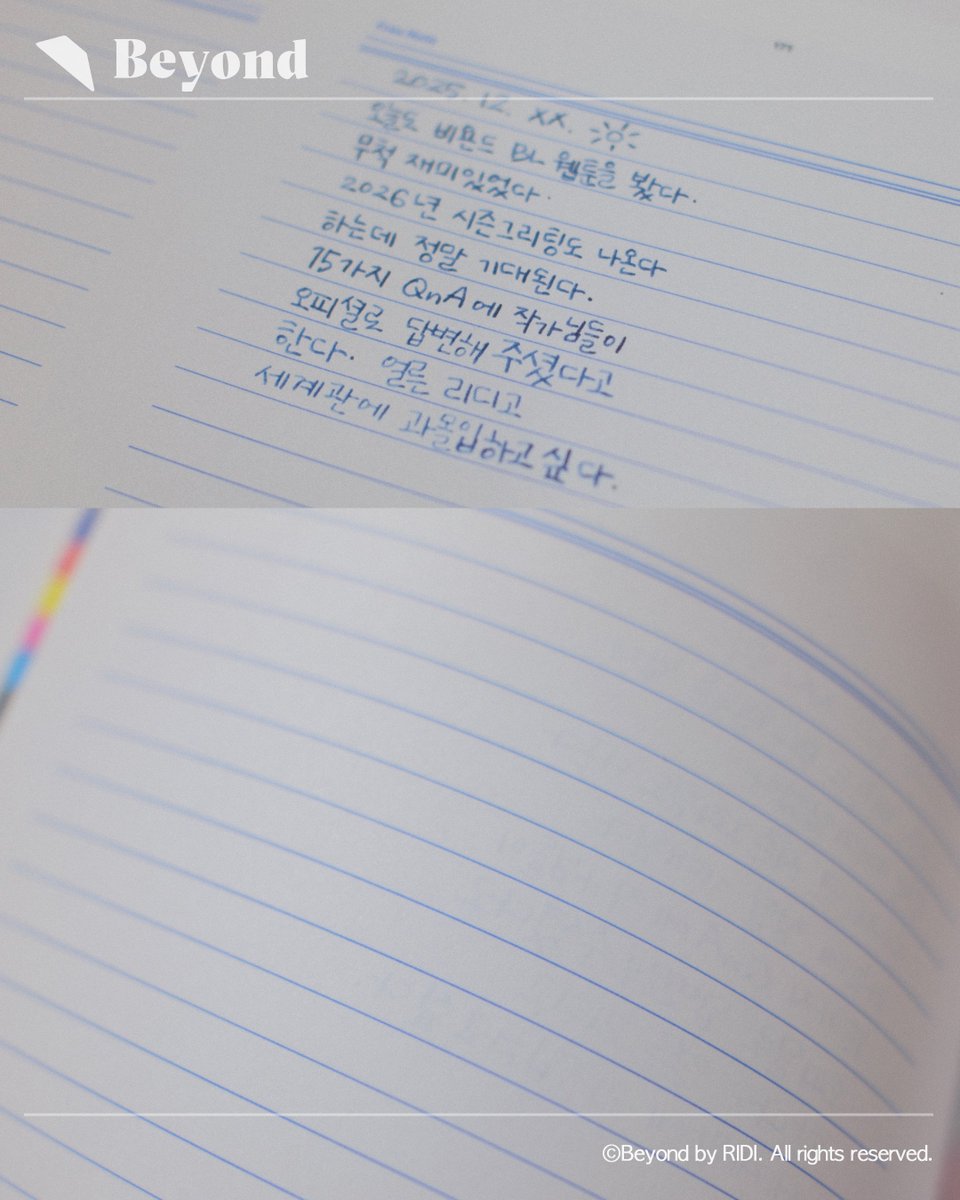 Beyond
Free Note
171
2025. 12. XX.
오늘도 비욘드 BL 웹툰을 봤다.
무척 재미있었다.
2026년 시즌그리팅도 나온다
하는데 정말 기대된다.
15가지 QnA에 작가님들이
오피셜로 답변해 주셨다고
한다. 얼른 리디고
세계관에 과몰입하고 싶다.
©Beyond by RIDI. All rights reserved.